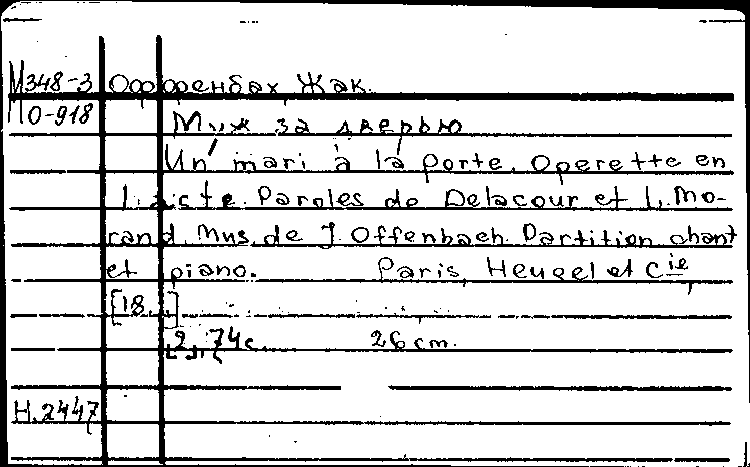 М348-3 Оффенбах, Жак.
МО-918
Муж за дверью
Un mari à la porte. Operette en
1 acte. Paroles de Delacour et L. Mo-
rand. Mus. de J. Offenbach. Partition chant
et piano. Paris, Heugel et Cie,
[18..]
[2], 74 с. 26 cm.
Н.2447